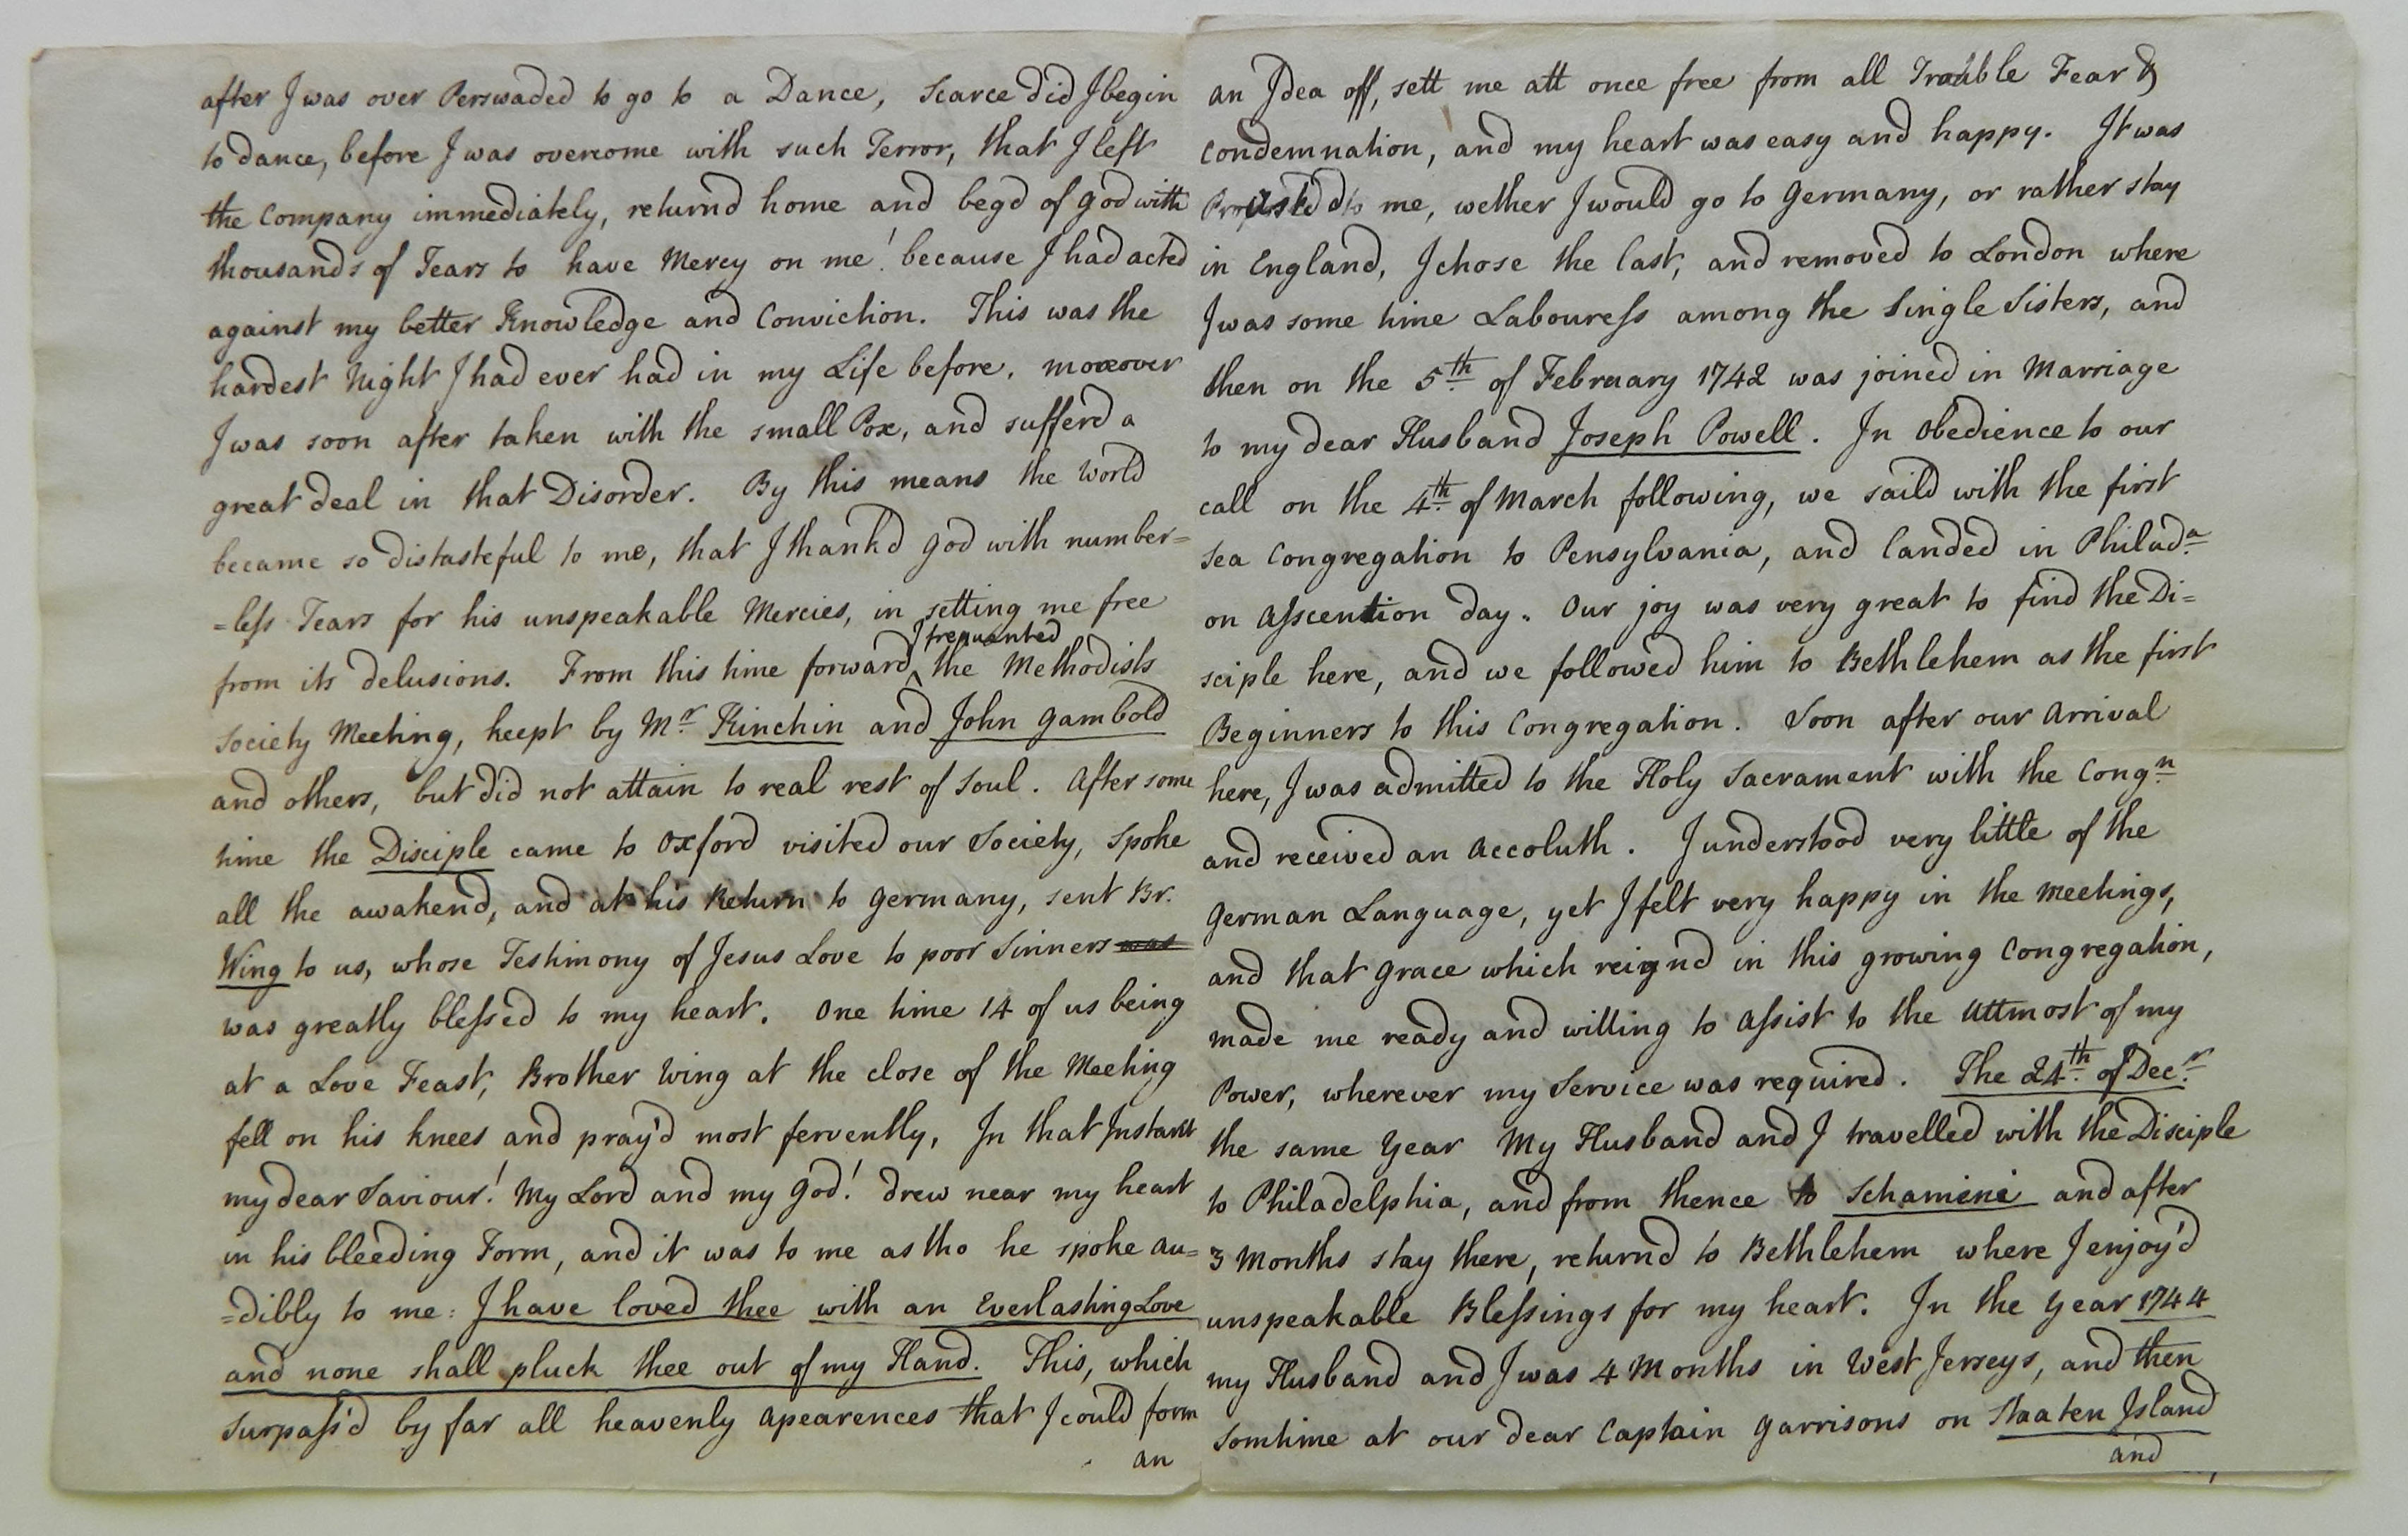 after I was over Perswaded to go to a Dance, Scarce did I begin
to dance, before I was overcome with such Terror, that I left
the Company immediately, returnd home and begd of God with
thousands of Tears to have Mercy on me! because I had acted
against my better Knowledge and Conviction. This was the
hardest Night I had ever had in my Life before. moreover
I was soon after taken with the small Pox, and sufferd a
great deal in that Disorder. By this means the World
became so distasteful to me, that I thank'd God with number=
=less Tears for his unspeakable Mercies, in setting me free
I frequented
from its delusions. From this time forward ^ the Methodists
Society Meeting, keept by Mr. Kinchin and John Gambold
and others, but did not attain to real rest of Soul. After some
time the Disciple came to Oxford visited our Society, Spoke
all the awakend, and at his Return to Germany, sent Br.
Wing to us, whose Testimony of Jesus Love to poor Sinners was
was greatly blessed to my heart. One time 14 of us being
at a Love Feast, Brother Wing at the close of the Meeting
fell on his knees and pray'd most fervently, In that Instant
my dear Saviour! My Lord and my God! drew near my heart
in his bleeding Form, and it was to me as tho he spoke au=
=dibly to me: I have loved thee with an Everlasting Love
and none shall pluck thee out of my Hand. This, which
Surpass'd by far all heavenly apearences that I could form
an
an Idea off, sett me att once free from all Trouble Fear &
Condemnation, and my heart was easy and happy. It was
to me, wether I would go to Germany, or rather stay
in England, I chose the last, and removed to London where
I was some time Labouress among the Single Sisters, and
then on the 5th of February 1742 was joined in Marriage
to my dear Husband Joseph Powell. In Obedience to our
call on the 4th of March following, we saild with the first
Sea Congregation to Pensylvania, and landed in Philada
on Ascention day. Our joy was very great to find the Di=
sciple here, and we followed him to Bethlehem as the first
Beginners to this Congregation. Soon after our Arrival
here, I was admitted to the Holy Sacrament with the Congn
and received an Accoluth. I understood very little of the
German Language, yet I felt very happy in the meetings,
and that Grace which reignd in this growing Congregation,
made me ready and willing to assist to the Uttmost of my
Power, wherever my Service was required. The 24th of Decr
the same Year My Husband and I travelled with the Disciple
to Philadelphia, and from thence to Schamini and after
3 Months stay there, returnd to Bethlehem where I enjoy'd
unspeakable Blessings for my heart. In the Year 1744
my Husband and I was 4 Months in West Jerseys, and then
Somtime at our dear Captain Garrisons on Staaten Island
and